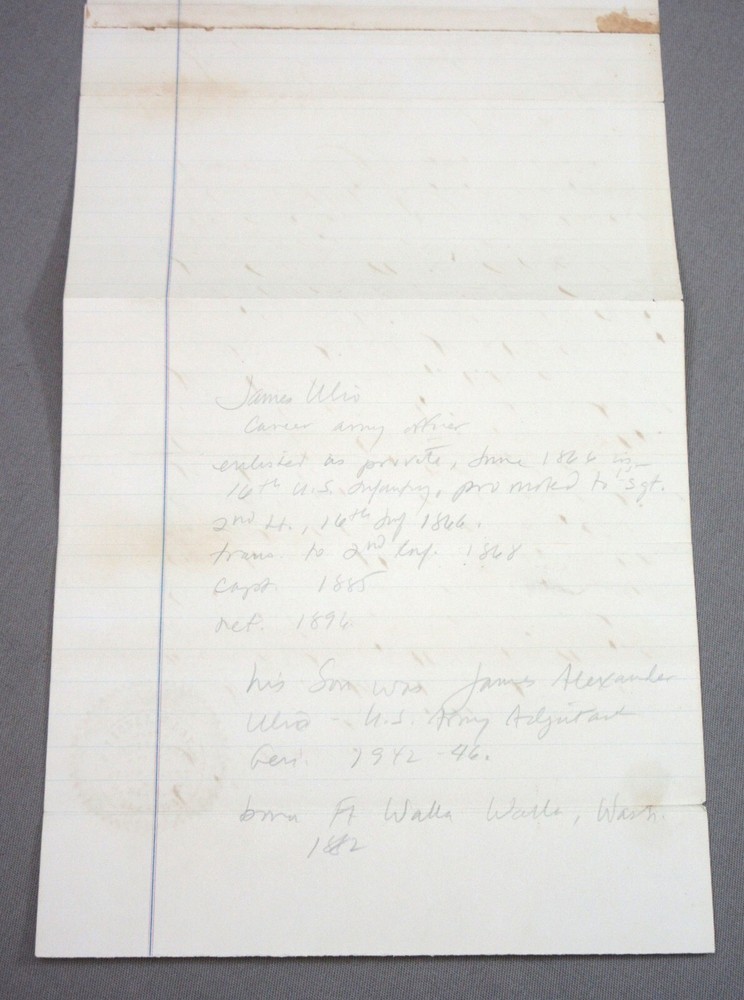 James Ulio
Career army officer
enlisted as private, June 1864 in
16th U.S. Infantry, promoted to 1st Sgt.
2nd Lt., 16th Inf 1866.
trans. to 2nd Inf. 1868
Capt. 1885
ret. 1896
his Son was James Alexander
Ulio - U.S. Army Adjutant
Gen. 1942-46.
born Ft Walla Walla, Wash.
1882